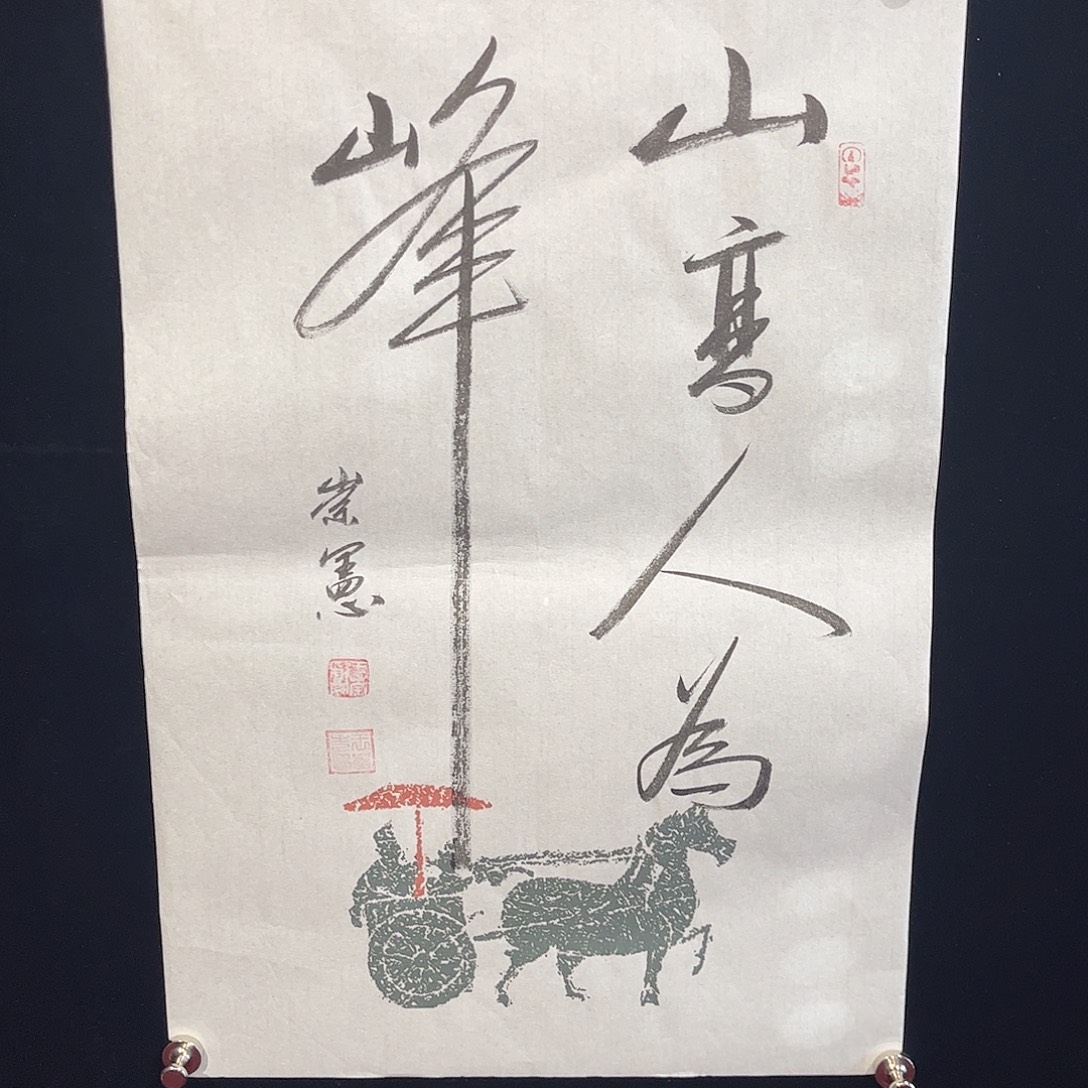 山高人為
峰
崇憲